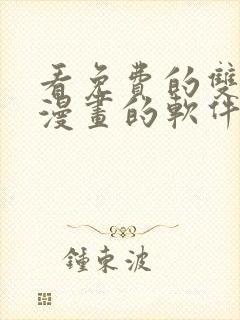 看免費的雙
漫畫的軟件
鍾東波